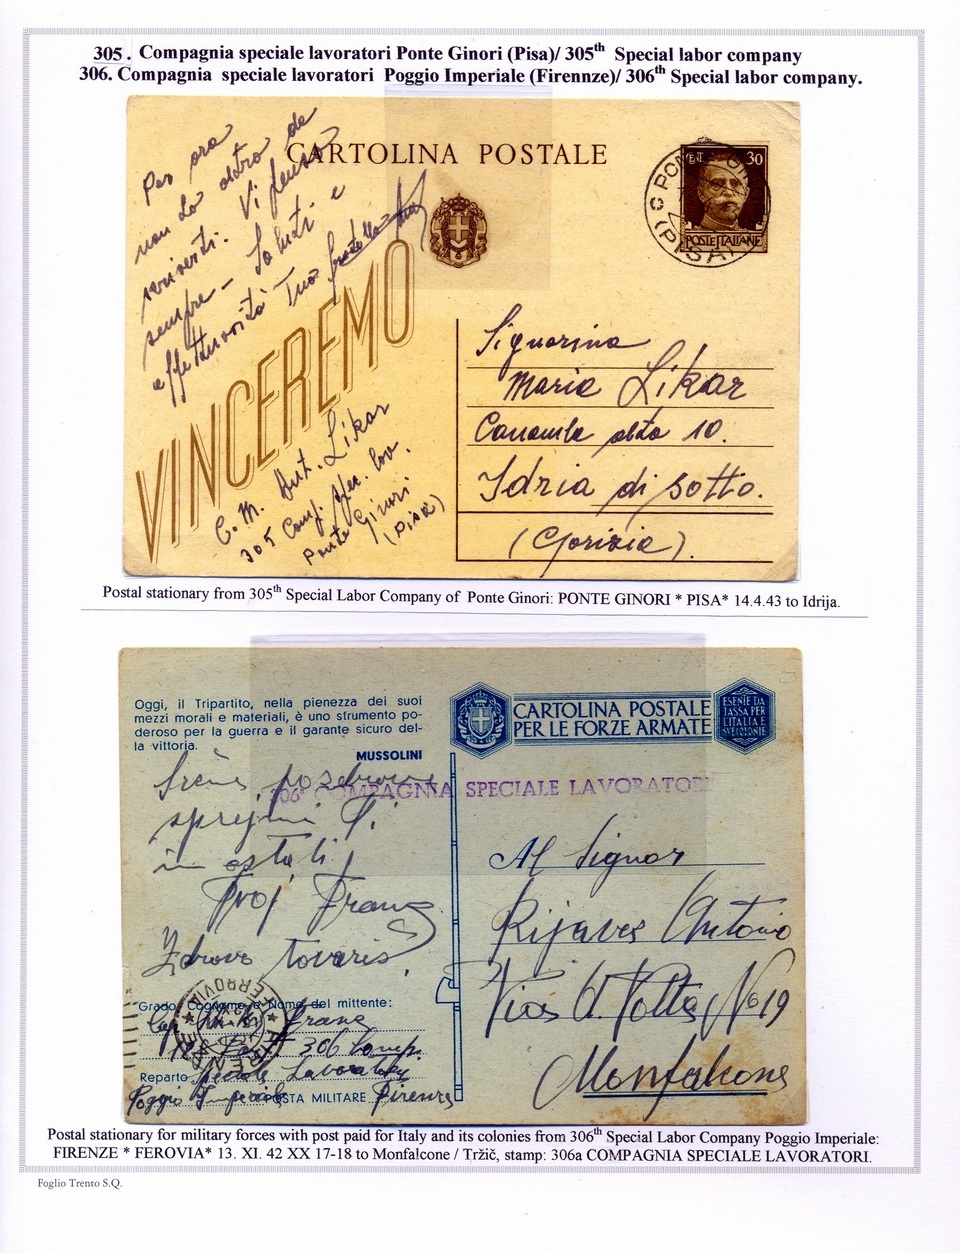 305. Compagnia speciale lavoratori Ponte Ginori (Pisa)/ 305th Special labor company
306. Compagnia speciale lavoratori Poggio Imperiale (Firennze)/ 306th Special labor company.
Per ora
non do altro da
scriverti. Vi penso
sempre - Saluti e
affettuosità Tuo
CARTOLINA POSTALE
30
POSTE ITALIANE
(PISA)
VINCEREMO
C. M. Ant. Likar
305 Comp. spec. lav.
Ponte Ginori
(Pisa)
Signorina
Maria Likar
alta 10.
Idria di sotto.
(Gorizia).
Postal stationary from 305th Special Labor Company of Ponte Ginori: PONTE GINORI * PISA* 14.4.43 to Idrija.
Oggi, il Tripartito, nella pienezza dei suoi
mezzi morali e materiali, è uno strumento po-
deroso per la guerra e il garante sicuro del-
la vittoria.
MUSSOLINI
CARTOLINA POSTALE
PER LE FORZE ARMATE
ESENTE DA
TASSA PER
L'ITALIA E
SUE COLONIE
306a COMPAGNIA SPECIALE LAVORATORI
Srečno pozdravom
sprejmi T.
in ostali
Tvoj Franc
Zdravo tovaris.
Al Signor
Rijaves Antonio
Via A. Volta No 19
Monfalcone
FERROVIA
Grado, Cognome e Nome del mittente:
Franc
306 Comp.
Reparto Speciale Lavoratory
Poggio Imperiale POSTA MILITARE Firenze
Postal stationary for military forces with post paid for Italy and its colonies from 306th Special Labor Company Poggio Imperiale:
FIRENZE * FEROVIA* 13. XI. 42 XX 17-18 to Monfalcone / Tržič, stamp: 306a COMPAGNIA SPECIALE LAVORATORI.
Foglio Trento S.Q.